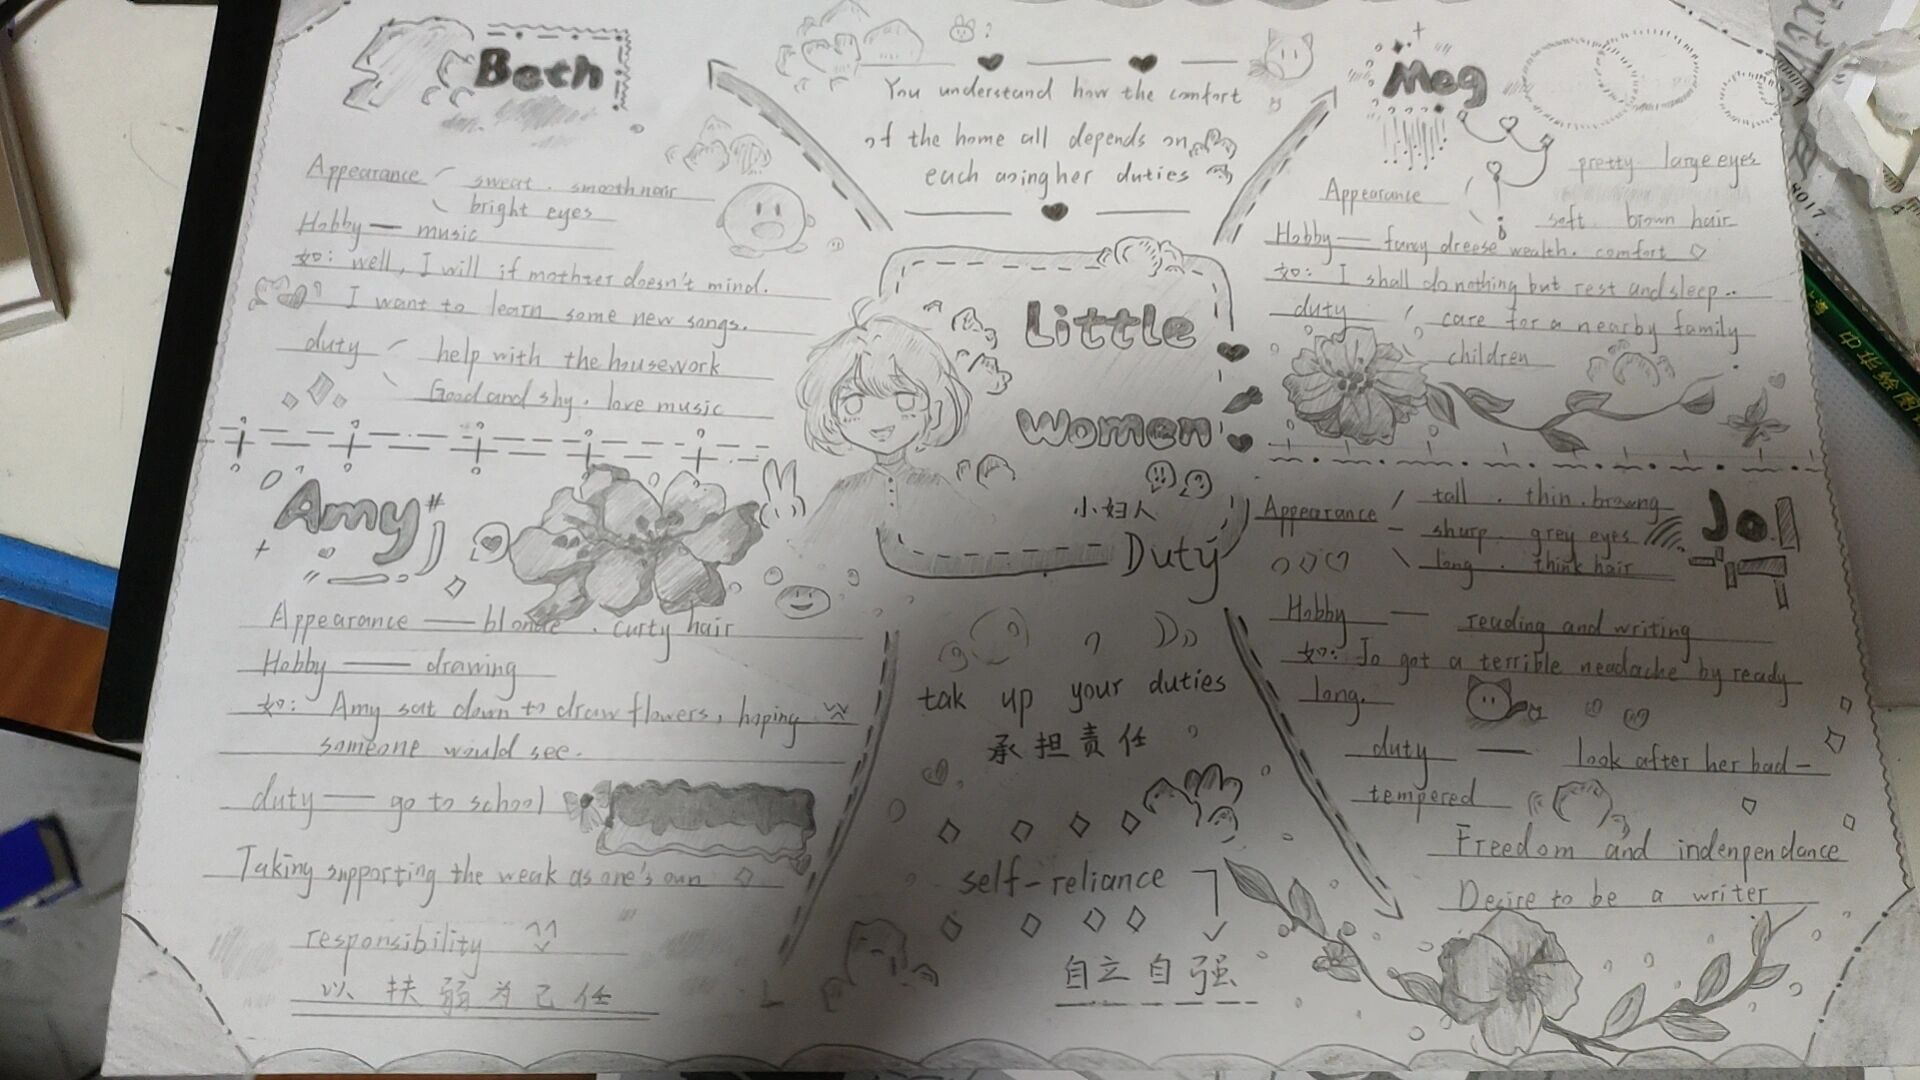 Beth
Appearance sweat. smooth hair
bright eyes
Hobby — music
如: well, I will if mothter doesn't mind.
I want to learn some new songs.
duty help with the housework
Good and shy. love music
You understand how the comfort
of the home all depends on
each doing her duties
Meg
pretty large eyes
Appearance
soft brown hair
Hobby — fancy dreese wealth. comfort
如: I shall do nothing but rest and sleep..
duty care for a nearby family
children
Little
Women
小妇人
Duty
Amy
Appearance — blonde. curty hair
Hobby — drawing
如: Amy sat down to draw flowers, hoping
someone would see.
duty — go to school
Taking supporting the weak as one's own
responsibility
以扶弱为己任
tak up your duties
承担责任
self-reliance
自立自强
Jo
Appearance tall. thin.
sharp. grey eyes
long. think hair
Hobby — reading and writing
如: Jo got a terrible neadache by ready
long.
duty — look after her bad-
tempered
Freedom and indenpendance
Desire to be a writer
8017
中华绘图